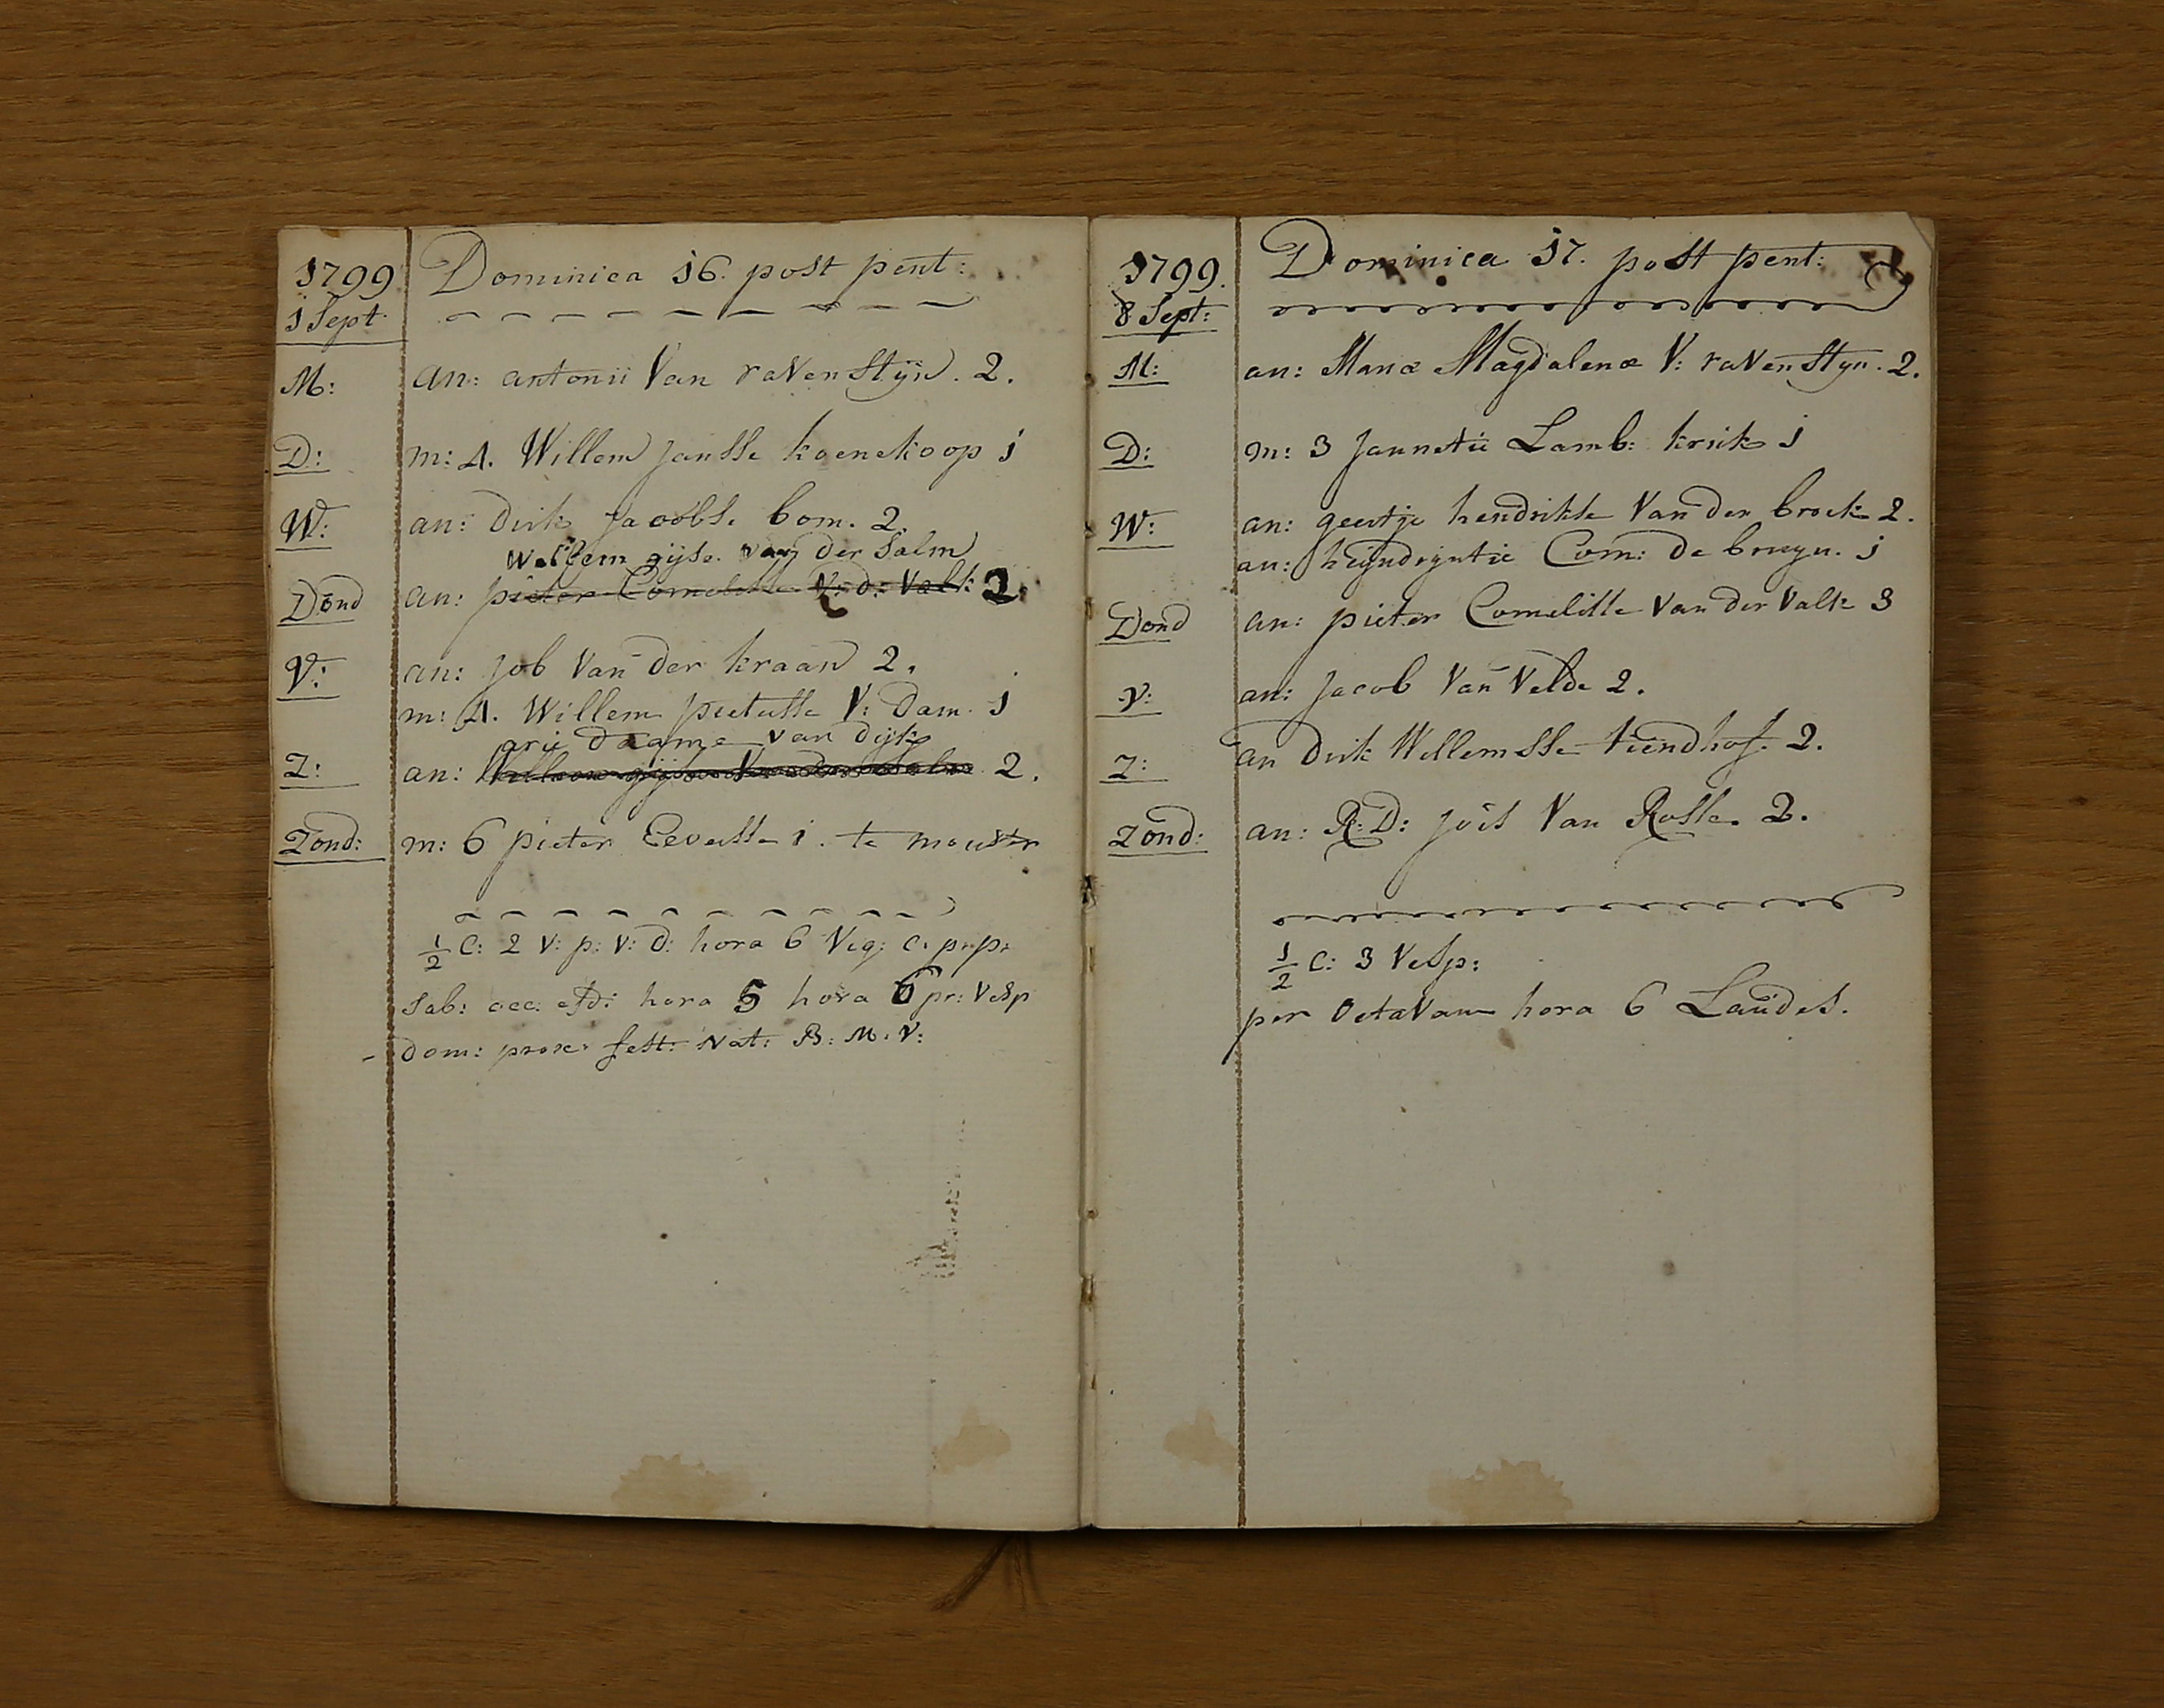 1799 Dominica 16. post pent:
1 Sept
M: an: antonii Van ravenstijn. 2.
D: m: 4. Willem Jansse koenekoop 1
W: an: Dirk Jacobs. bom. 2.
Willem gijse. van der Salm
Dond an: pieter Cornelisse V: d: Valk 2.
V: an: Job Van der kraan 2.
m: 4. Willem pieterse V: Dam. 1
arie Daame van dijk
Z: an: Willem gijse Van der Salm 2.
Zond: m: 6 pieter Eeverse 1. te
1/2 C: 2 V: p: V: d: hora 6 Vig: c. pr. pr
Sab: occ. hora 5 hora 6 pr: Vesp
dom: prox: fest: Nat: B: M. V:
1799. Dominica 17. post pent:
8 Sept:
M: an: Mariæ Magdalenæ V: ravenstyn. 2.
D: m: 3 Jannetie Lamb: kruk 1
W: an: geertje hendrikse Van den broek 2.
an: heijndryntie Corn: de bruyn. 1
Dond an: pieter Cornelisse Van der Valk 3
V: an: Jacob Van Velde 2.
Z: an Dirk Willemsse tiendhof. 2.
Zond: an: R: D: Jois Van Rosse. 2.
1/2 C: 3 Vesp:
per OctaVam hora 6 Laudes.